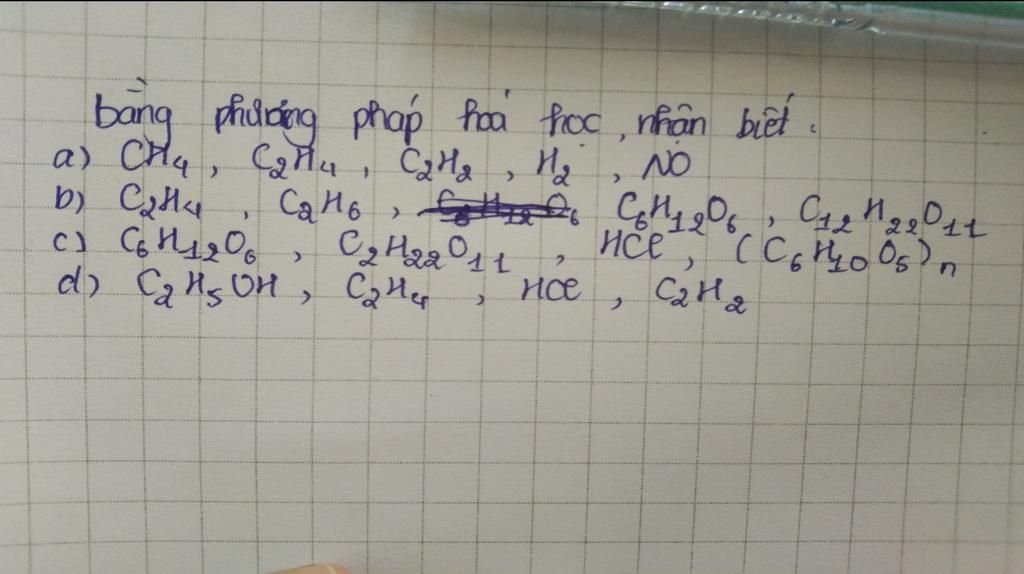 bằng phương pháp hoá học, nhận biết.
a) CH4, C2H4, C2H2, H2, NO
b) C2H4, C2H6, C6H12O6 C6H12O6, C12H22O11
c) C6H12O6, C2H22O11, HCl, (C6H10O5)n
d) C2H5OH, C2H4, HCl, C2H2